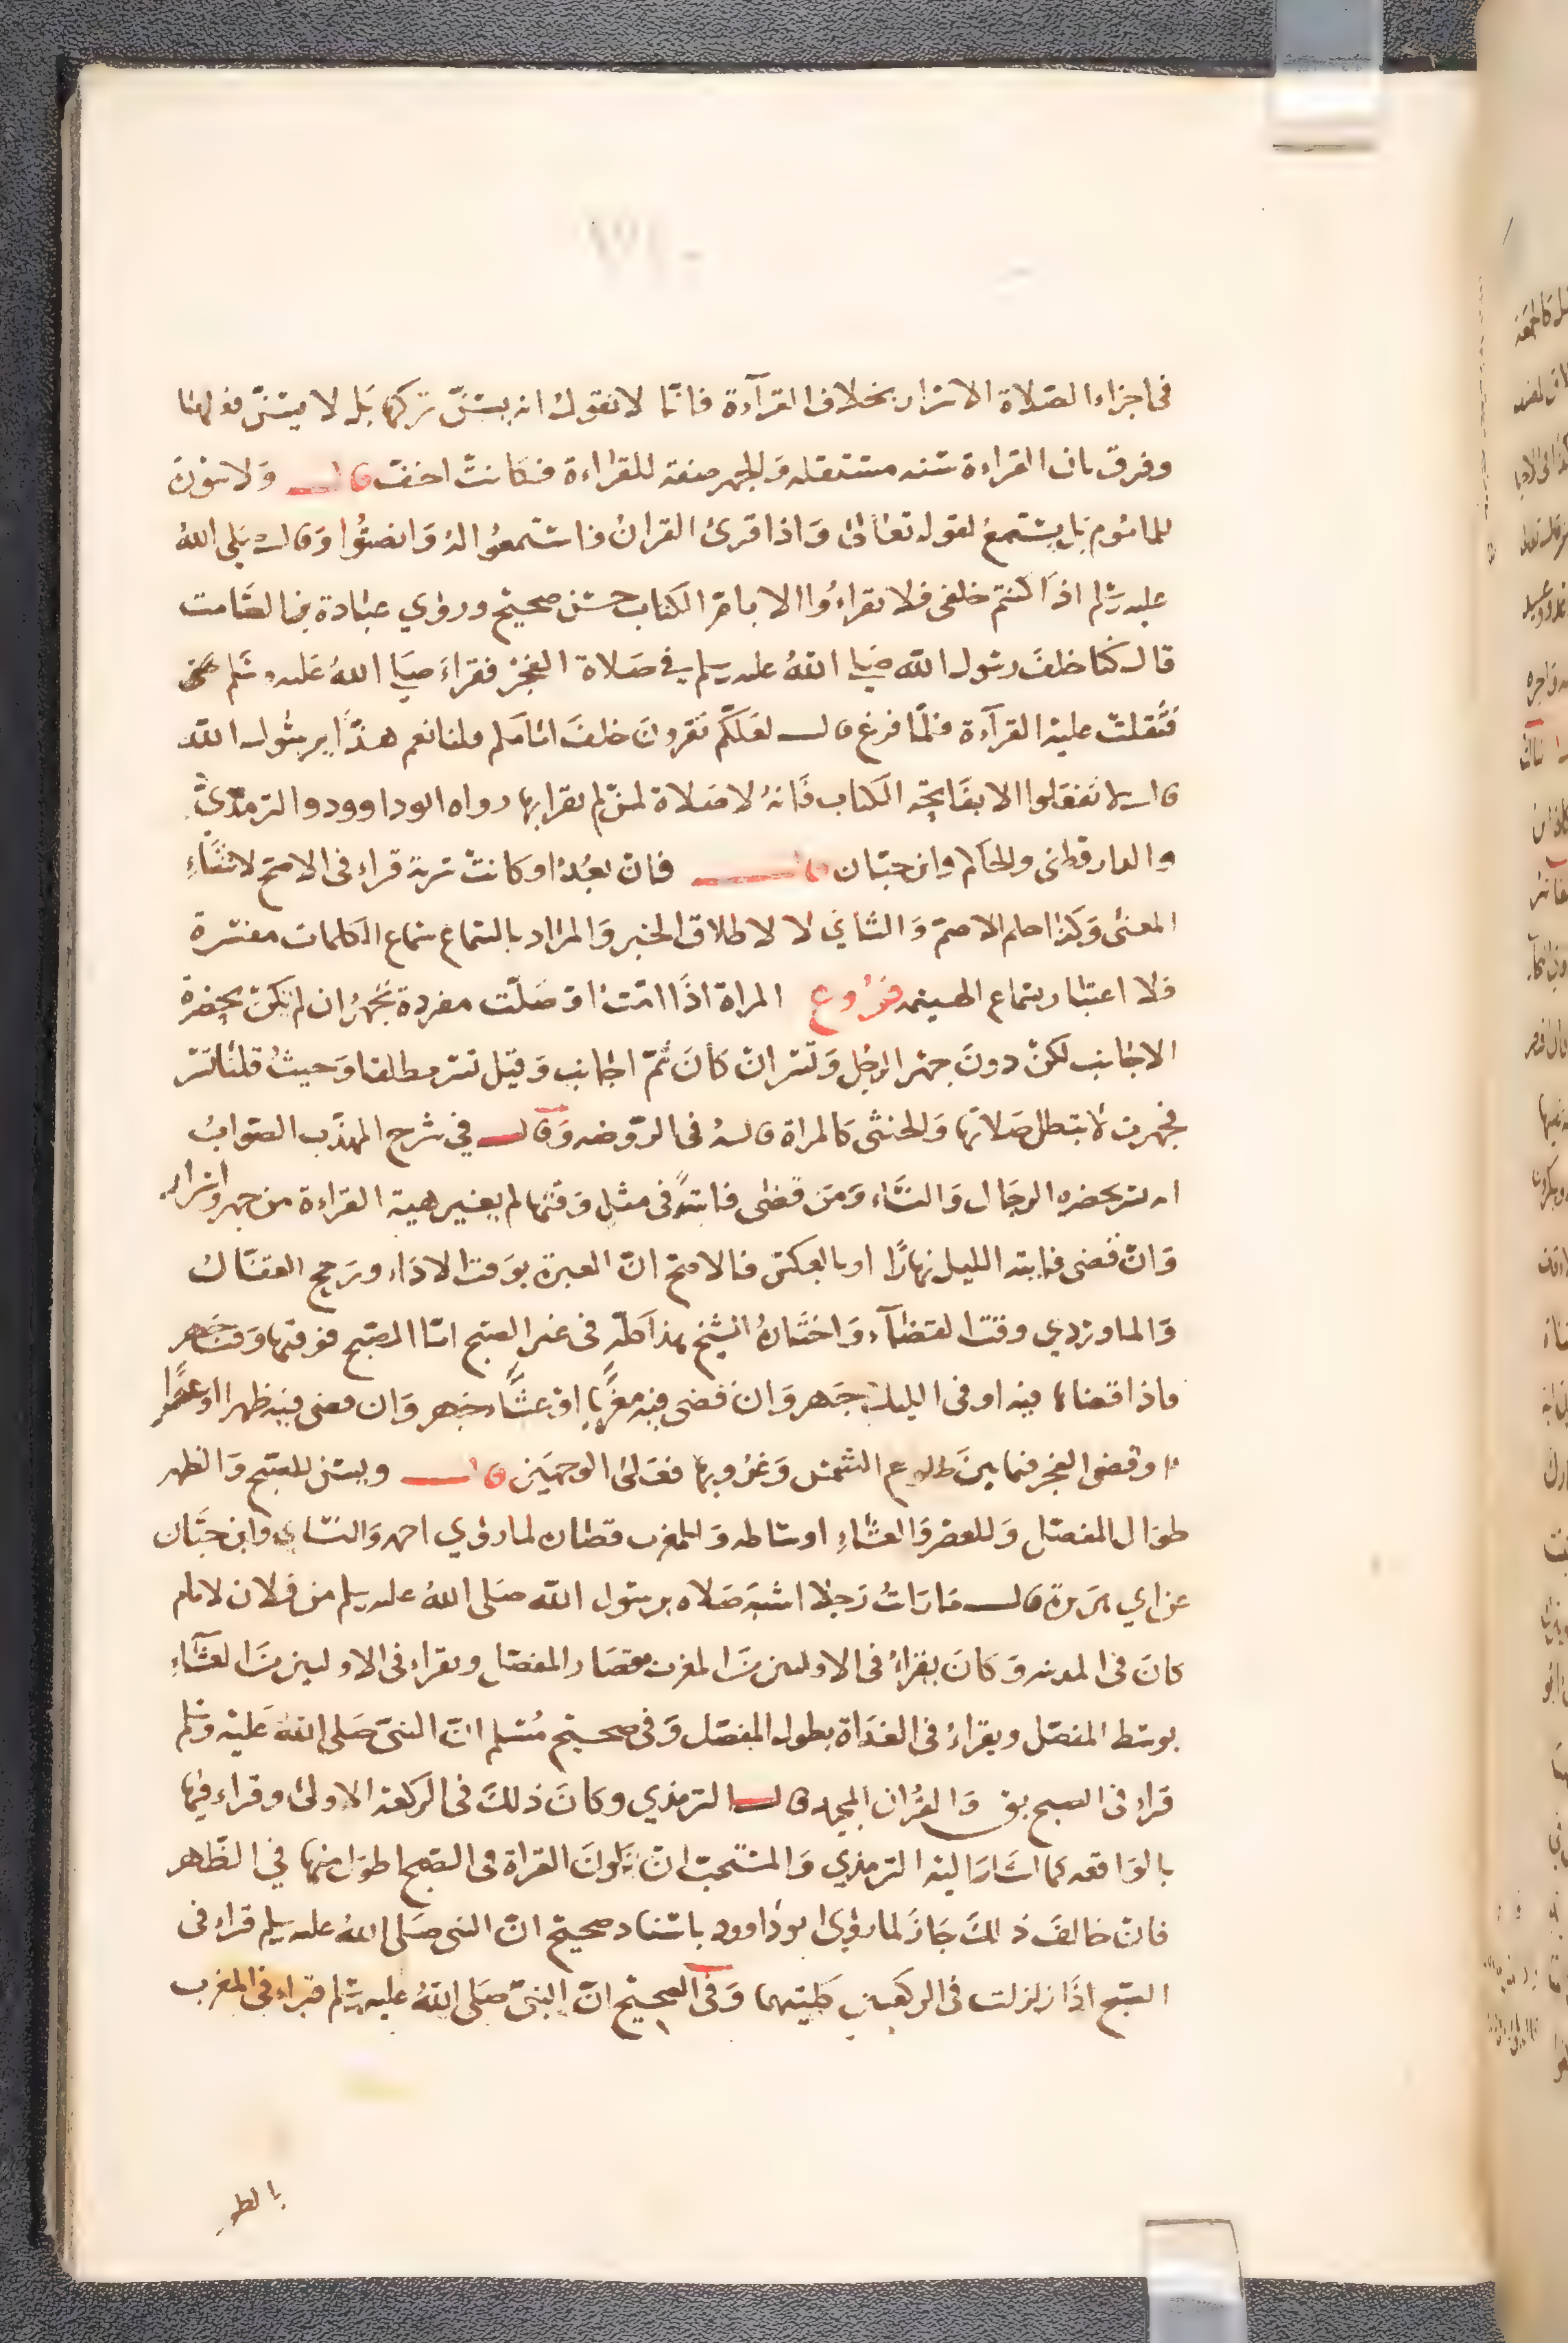 في اجزاء الصلاة الاسرار بخلاف القرآءة فانّا لا نقول انه يسنّ تركها بل لا يسنّ فعلها
وفرق بان القراءة سنه مستقله والجهر صفة للقراءة فكانت اخف قال ولا سورة
للماموم بل يستمع لقوله تعالى واذا قرئ القران فاستمعوا له وانصتوا وقال صلى الله
عليه وسلم اذا كنتم خلفي فلا تقراءوا الا بام الكتاب حسن صحيح وروي عبادة بن الصامت
قال كنا خلف رسول الله صلى الله عليه وسلم في صلاة الفجر فقراء صلى الله عليه وسلم
فثقلت عليه القرآءة فلمّا فرغ قال لعلكم تقرون خلف امامكم قلنا نعم هذّا يرسول الله
قال لا تفعلوا الا بفاتحة الكتاب فانه لا صلاة لمن لم يقرا بها رواه ابو داوود والترمذيّ
والدارقطني والحاكم وابن حبّان قال فان بعُد او كانت سرية قراء في الاصح لانتفاء
المعنى وكذا حكم الاصم والثاني لا لاطلاق الخبر والمراد بالسماع سماع الكلمات مفسرة
فلا اعتبار بسماع الهينمه فروع المراة اذا امّت او صلّت مفردة تجهر ان لم يكن بحضرة
الاجانب لكن دون جهر الرجل وتسر ان كان ثمّ اجانب وقيل تسر مطلقا وحيث قلنا تسر
فجهرت لا تبطل صلاتها والخنثى كالمراة قاله في الروضه وقال في شرح المهذب الصواب
انه يسر بحضره الرجال والنساء ومن قضى فايتةً في مثل وقتها لم يغير هية القراءة من جهر واسرار
وان قضى فايته الليل نهارًا او بالعكس فالاصح ان العبرة بوقت الاداء ورجح القفّال
والماوردي وقت القضآء واختاره الشيخ هذا كله في غير الصبح امّا الصبح فوقتها وقت جهر
فاذا قضاها فيه او في الليل جهر وان قضى فيه مغربا او عشاء جهر وان قضى فيه ظهرا او عصرا
او قضى الفجر فيما بين طلوع الشمس وغروبها فعلى الوجهين قال ويسن للصبح والظهر
طوال المفصل وللعصر والعشاء اوساطه وللمغرب قصاره لما روي احمد والنساي وابن حبّان
عن ابي هريرة قال ما رات رجلا اشبه صلاه برسول الله صلى الله عليه وسلم من فلان لامام
كان في المدينه وكان يقراء في الاوليين من المغرب بقصار المفصل ويقراء في الاوليين من العشآء
بوسط المفصل ويقراء في الغداة بطول المفصّل وفي صحيح مسلم انّ النبيّ صلى الله عليه وسلم
قراء في الصبح بق والقران المجيد قال الترمذي وكان ذلك في الركعة الاولى وقراء فيها
بالواقعه كما اشار اليه الترمذي والمستحب ان يكون القراة في الصبح اطول منها في الظهر
فان خالف ذلك جاز لما روي ابو داوود باسناد صحيح انّ النبي صلى الله عليه وسلم قراء في
الصبح اذا زلزلت في الركعتين كلتيهما وفي الصحيح انّ النبيّ صلى الله عليه وسلم قراء في المغرب
بالطور